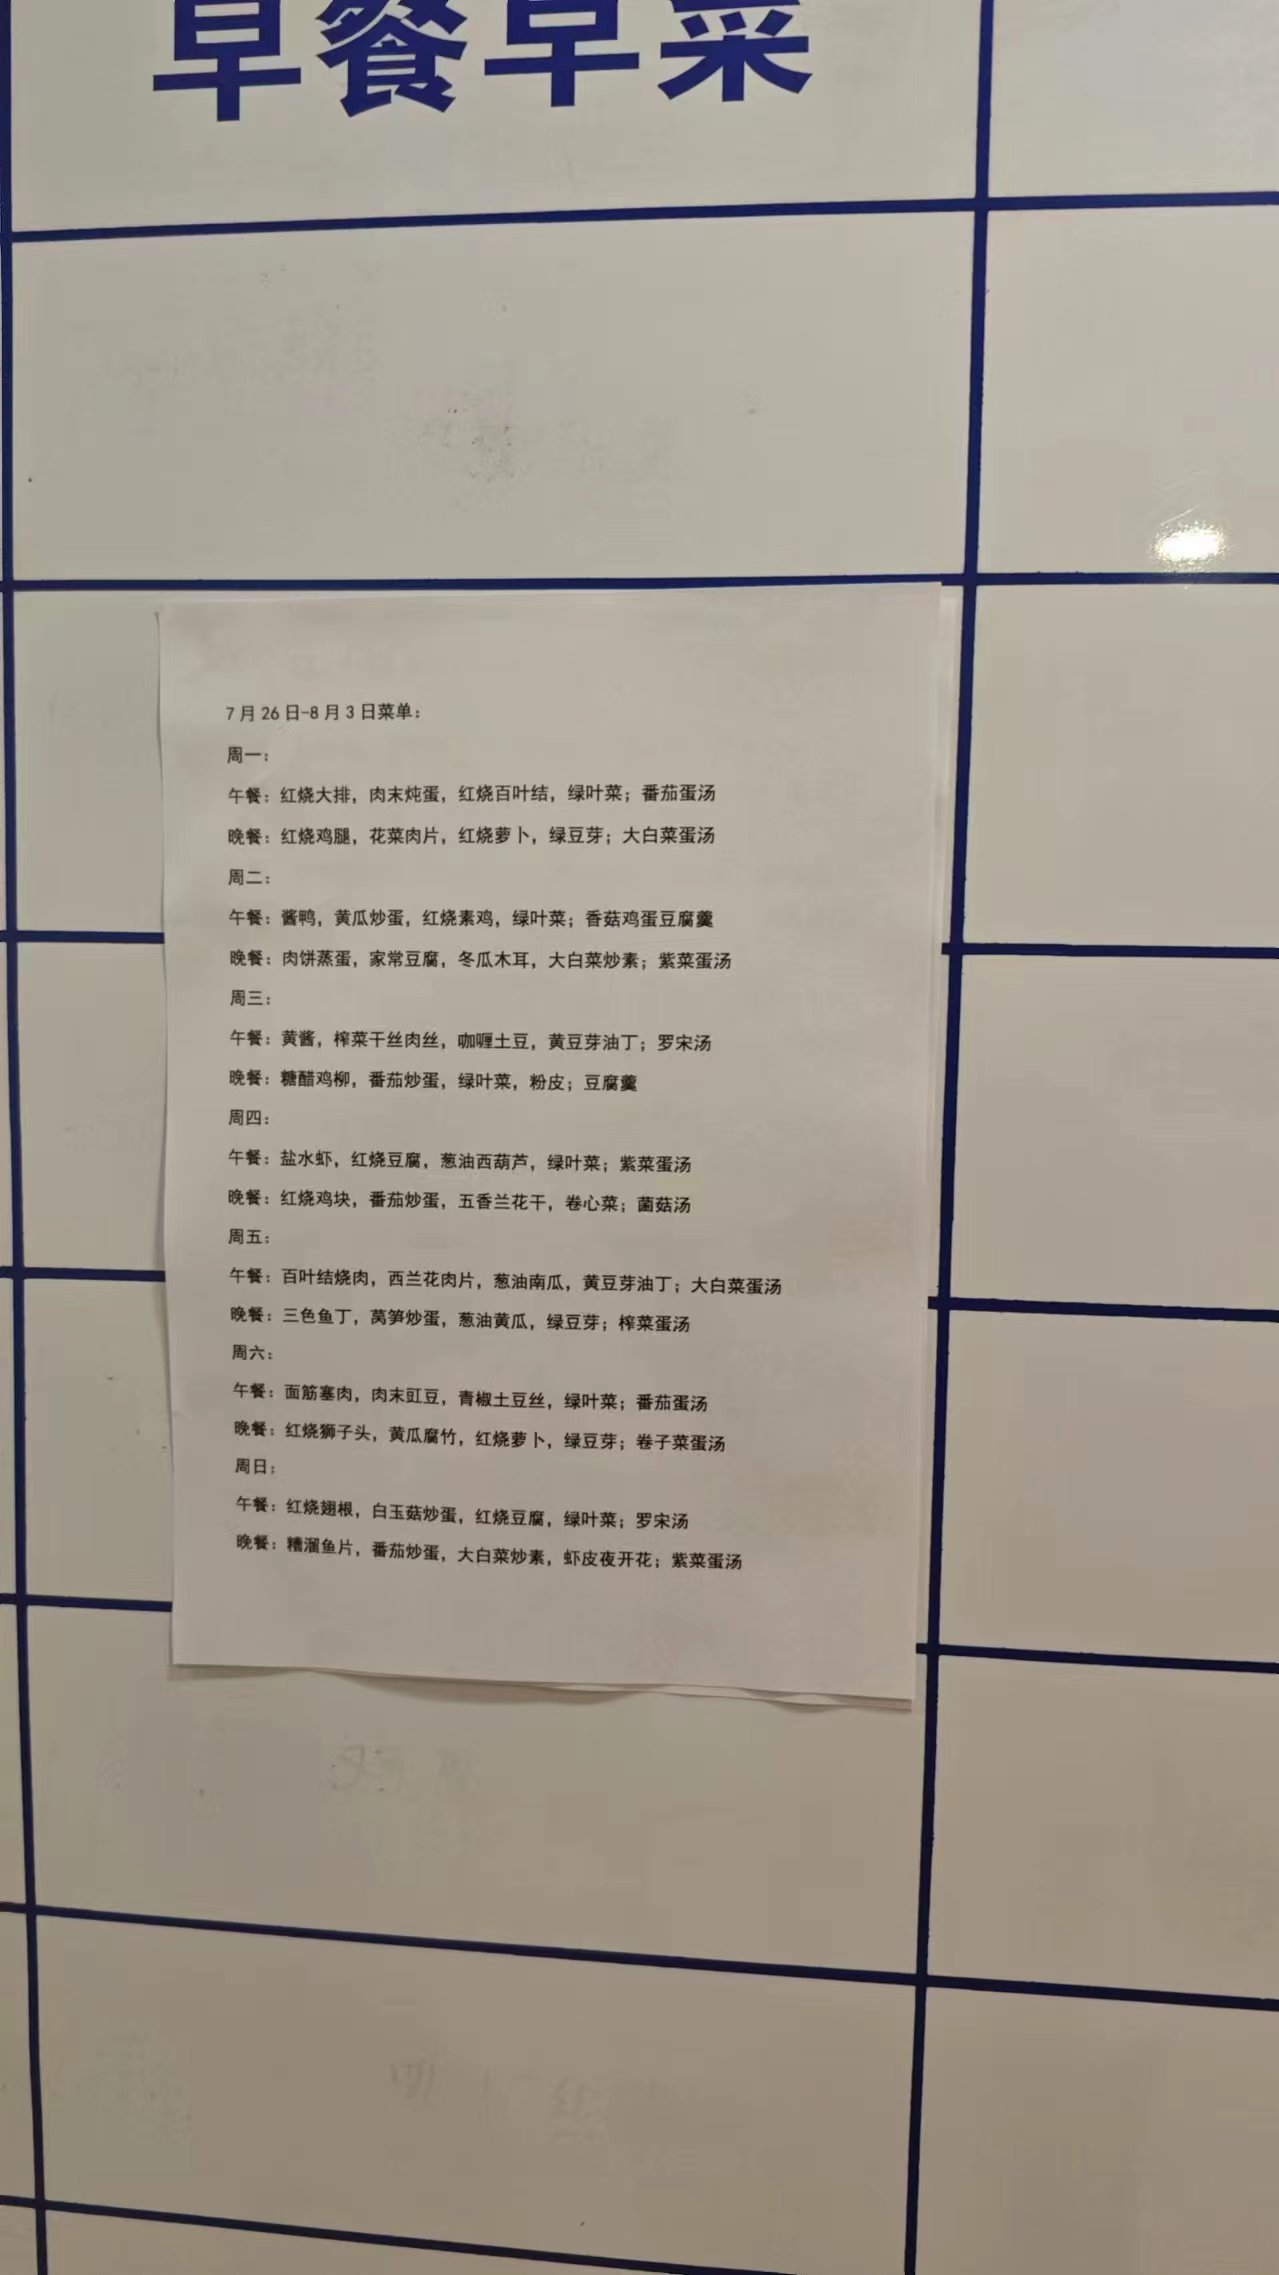 早餐早菜
7月26日-8月3日菜单：
周一：
午餐：红烧大排，肉末炖蛋，红烧百叶结，绿叶菜；番茄蛋汤
晚餐：红烧鸡腿，花菜肉片，红烧萝卜，绿豆芽；大白菜蛋汤
周二：
午餐：酱鸭，黄瓜炒蛋，红烧素鸡，绿叶菜；香菇鸡蛋豆腐羹
晚餐：肉饼蒸蛋，家常豆腐，冬瓜木耳，大白菜炒素；紫菜蛋汤
周三：
午餐：黄酱，榨菜干丝肉丝，咖喱土豆，黄豆芽油丁；罗宋汤
晚餐：糖醋鸡柳，番茄炒蛋，绿叶菜，粉皮；豆腐羹
周四：
午餐：盐水虾，红烧豆腐，葱油西葫芦，绿叶菜；紫菜蛋汤
晚餐：红烧鸡块，番茄炒蛋，五香兰花干，卷心菜；菌菇汤
周五：
午餐：百叶结烧肉，西兰花肉片，葱油南瓜，黄豆芽油丁；大白菜蛋汤
晚餐：三色鱼丁，莴笋炒蛋，葱油黄瓜，绿豆芽；榨菜蛋汤
周六：
午餐：面筋塞肉，肉末豇豆，青椒土豆丝，绿叶菜；番茄蛋汤
晚餐：红烧狮子头，黄瓜腐竹，红烧萝卜，绿豆芽；卷子菜蛋汤
周日：
午餐：红烧翅根，白玉菇炒蛋，红烧豆腐，绿叶菜；罗宋汤
晚餐：糟溜鱼片，番茄炒蛋，大白菜炒素，虾皮夜开花；紫菜蛋汤